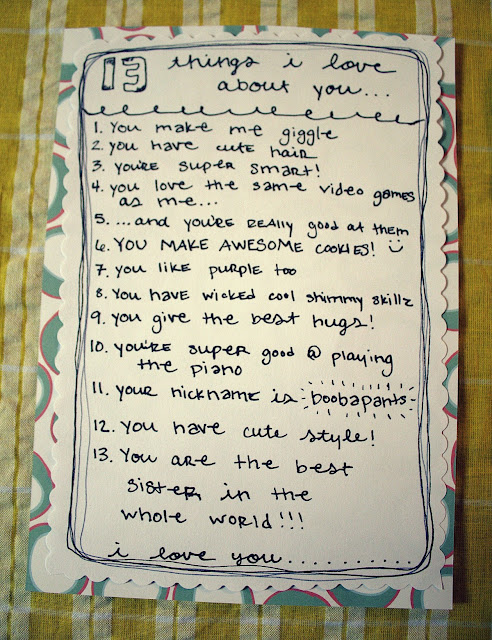 13 things i love
about you...
1. You make me giggle
2. you have cute hair
3. you're super smart!
4. you love the same video games
as me...
5. ...and you're REALLY good at them
6. YOU MAKE AWESOME COOKIES!
7. you like purple too
8. You have wicked cool shimmy skillz
9. you give the best hugs!
10. you're super good @ playing
the piano
11. your nickname is boobapants
12. you have cute style!
13. You are the best
sister in the
whole world!!!
i love you..........